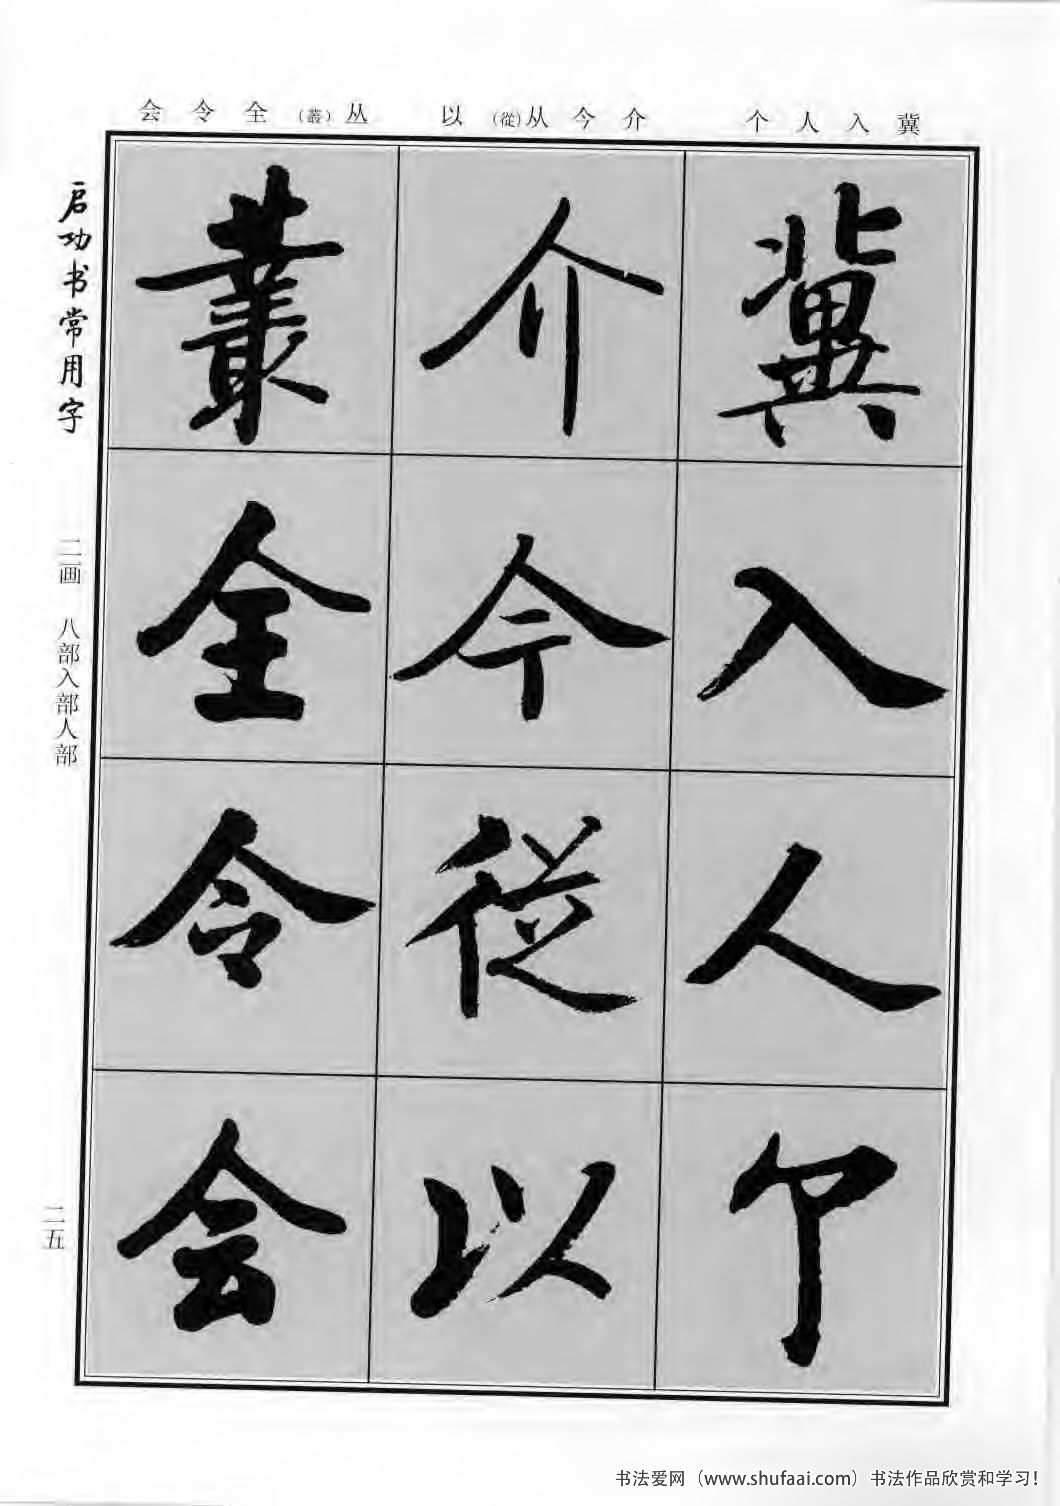 会令全(叢)丛 以(從)从今介 个人入冀
启功书常用字
二画 八部入部人部
二五
冀入人个
介今從以
叢全令会
书法爱网（www.shufaai.com）书法作品欣赏和学习！